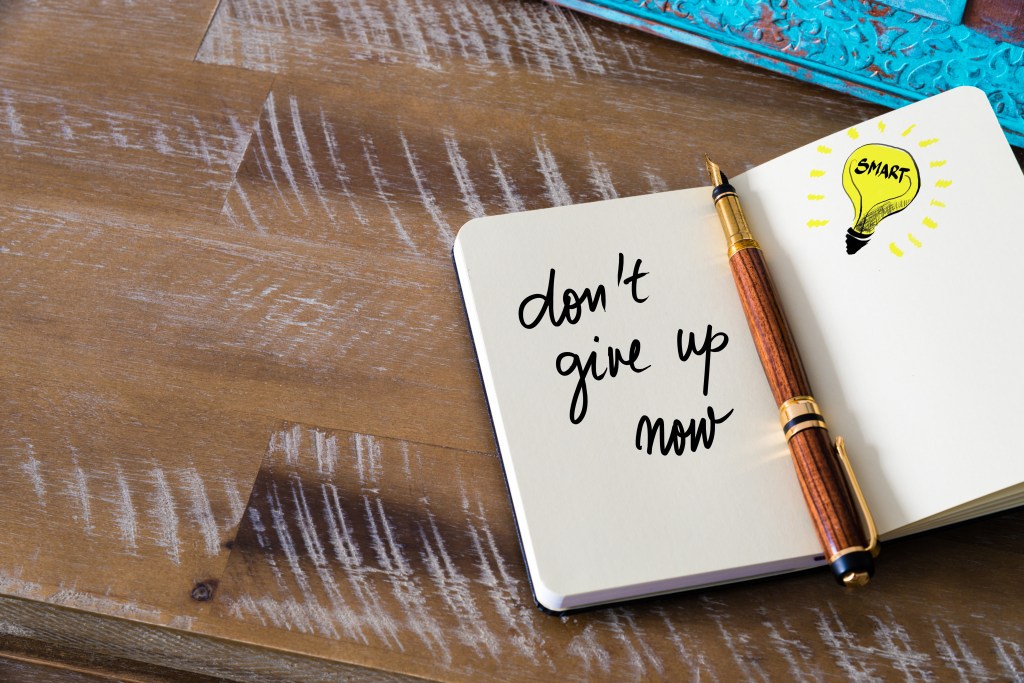 don't
give up
now
SMART